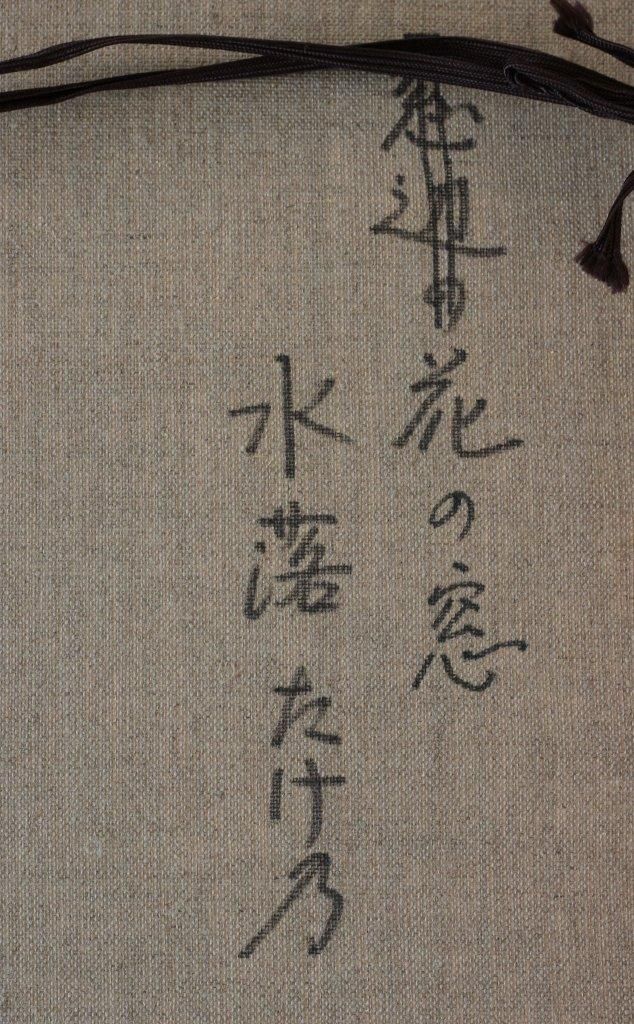 花の窓
水落たけ乃